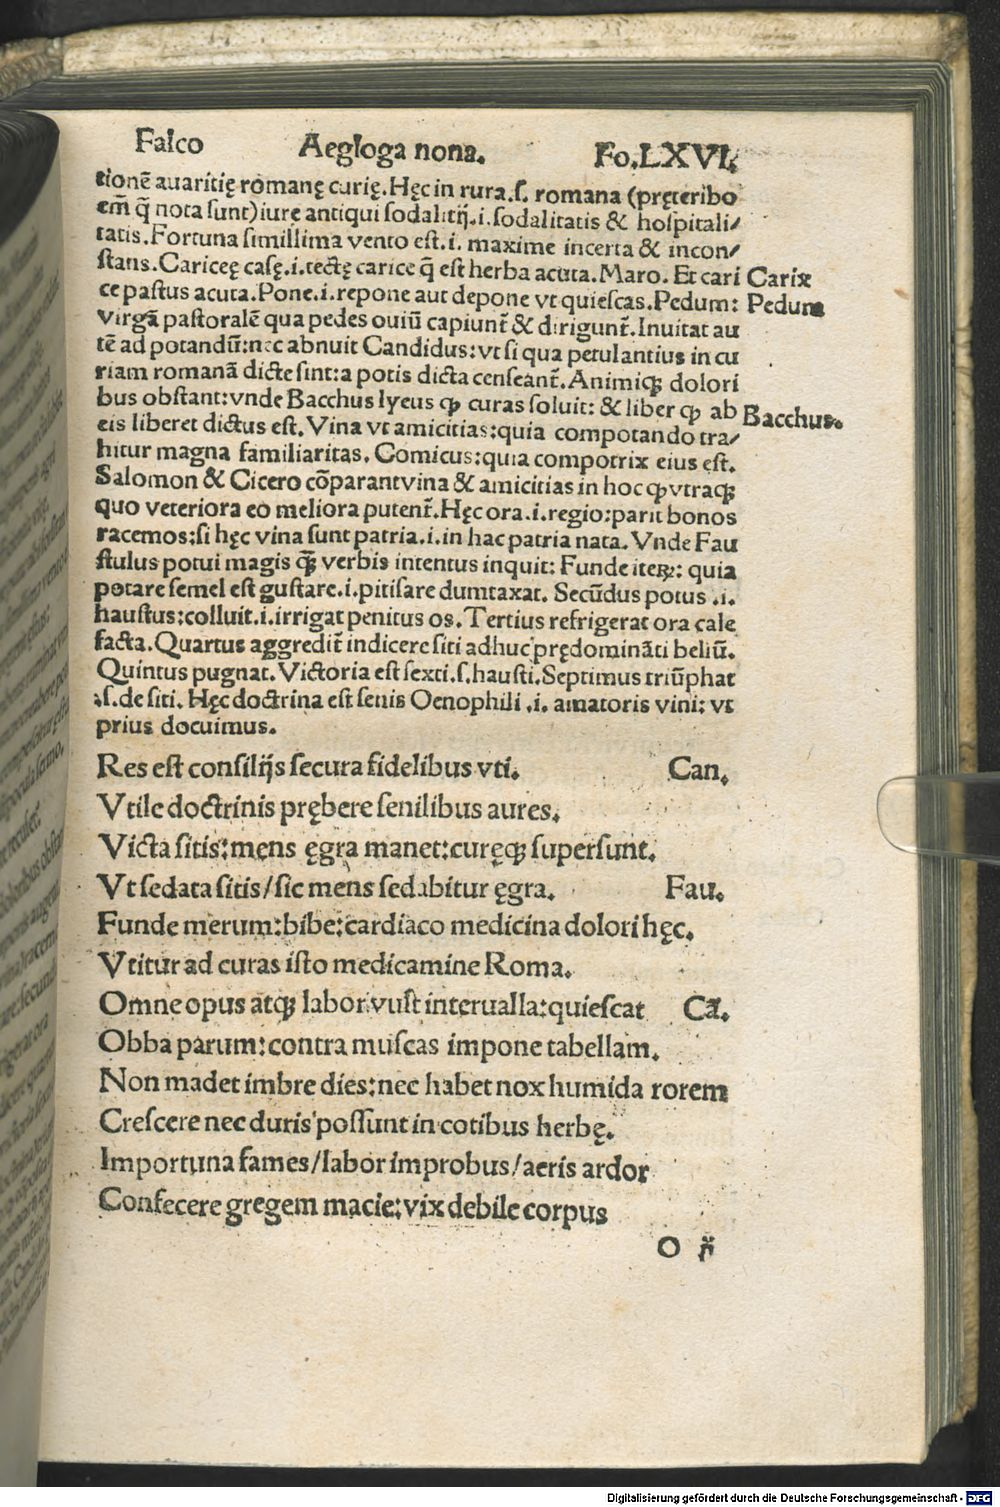 Falco Aegloga nona. Fo.LXVI.
tionē auaritię romanę curię. Hęc in rura.ſ. romana (pręteribo
em̄ q̄ nota ſunt) iure antiqui ſodalitij.i.ſodalitatis & hoſpitali/
tatis. Fortuna ſimillima vento eſt.i. maxime incerta & incon/
ſtans. Cariceę caſę.i.tectę carice q̄ eſt herba acuta. Maro. Et cari Carix
ce paſtus acuta. Pone.i.repone aut depone vt quieſcas. Pedum: Pedum
virgā paſtoralē qua pedes ouiū capiunt̄ & dirigunt̄. Inuitat au
tē ad potandū: nec abnuit Candidus: vt ſi qua petulantius in cu
riam romanā dicte ſint: a potis dicta cenſeant̄. Animiqꝫ dolori
bus obſtant: vnde Bacchus lyeus ꝙ curas ſoluit: & liber ꝙ ab Bacchus.
eis liberet dictus eſt. Vina vt amicitias: quia compotando tra/
hitur magna familiaritas. Comicus: quia compotrix eius eſt.
Salomon & Cicero cōparant vina & amicitias in hoc ꝙ vtraqꝫ
quo veteriora eo meliora putent̄. Hęc ora.i.regio: parit bonos
racemos: ſi hęc vina ſunt patria.i.in hac patria nata. Vnde Fau
ſtulus potui magis qꝫ̄ verbis intentus inquit: Funde iteꝝ: quia
potare ſemel eſt guſtare.i.pitiſare dumtaxat. Secūdus potus .i.
hauſtus: colluit.i.irrigat penitus os. Tertius refrigerat ora cale
facta. Quartus aggredit̄ indicere ſiti adhuc prędomināti bellū.
Quintus pugnat. Victoria eſt ſexti.ſ.hauſti. Septimus triūphat
.ſ.de ſiti. Hęc doctrina eſt ſenis Oenophili .i. amatoris vini: vt
prius docuimus.
Res eſt conſilijs ſecura fidelibus vti. Can.
Vtile doctrinis prębere ſenilibus aures.
Victa ſitis: mens ęgra manet: curęqꝫ ſuperſunt.
Vt ſedata ſitis/ ſic mens ſedabitur ęgra. Fau.
Funde merum: bibe: cardiaco medicina dolori hęc.
Vtitur ad curas iſto medicamine Roma.
Omne opus atqꝫ labor vult interualla: quieſcat Cā.
Obba parum: contra muſcas impone tabellam.
Non madet imbre dies: nec habet nox humida rorem
Creſcere nec duris poſſunt in cotibus herbę.
Importuna fames/ labor improbus/ aeris ardor
Confecere gregem macie: vix debile corpus
O ij
Digitalisierung gefördert durch die Deutsche Forschungsgemeinschaft - DFG